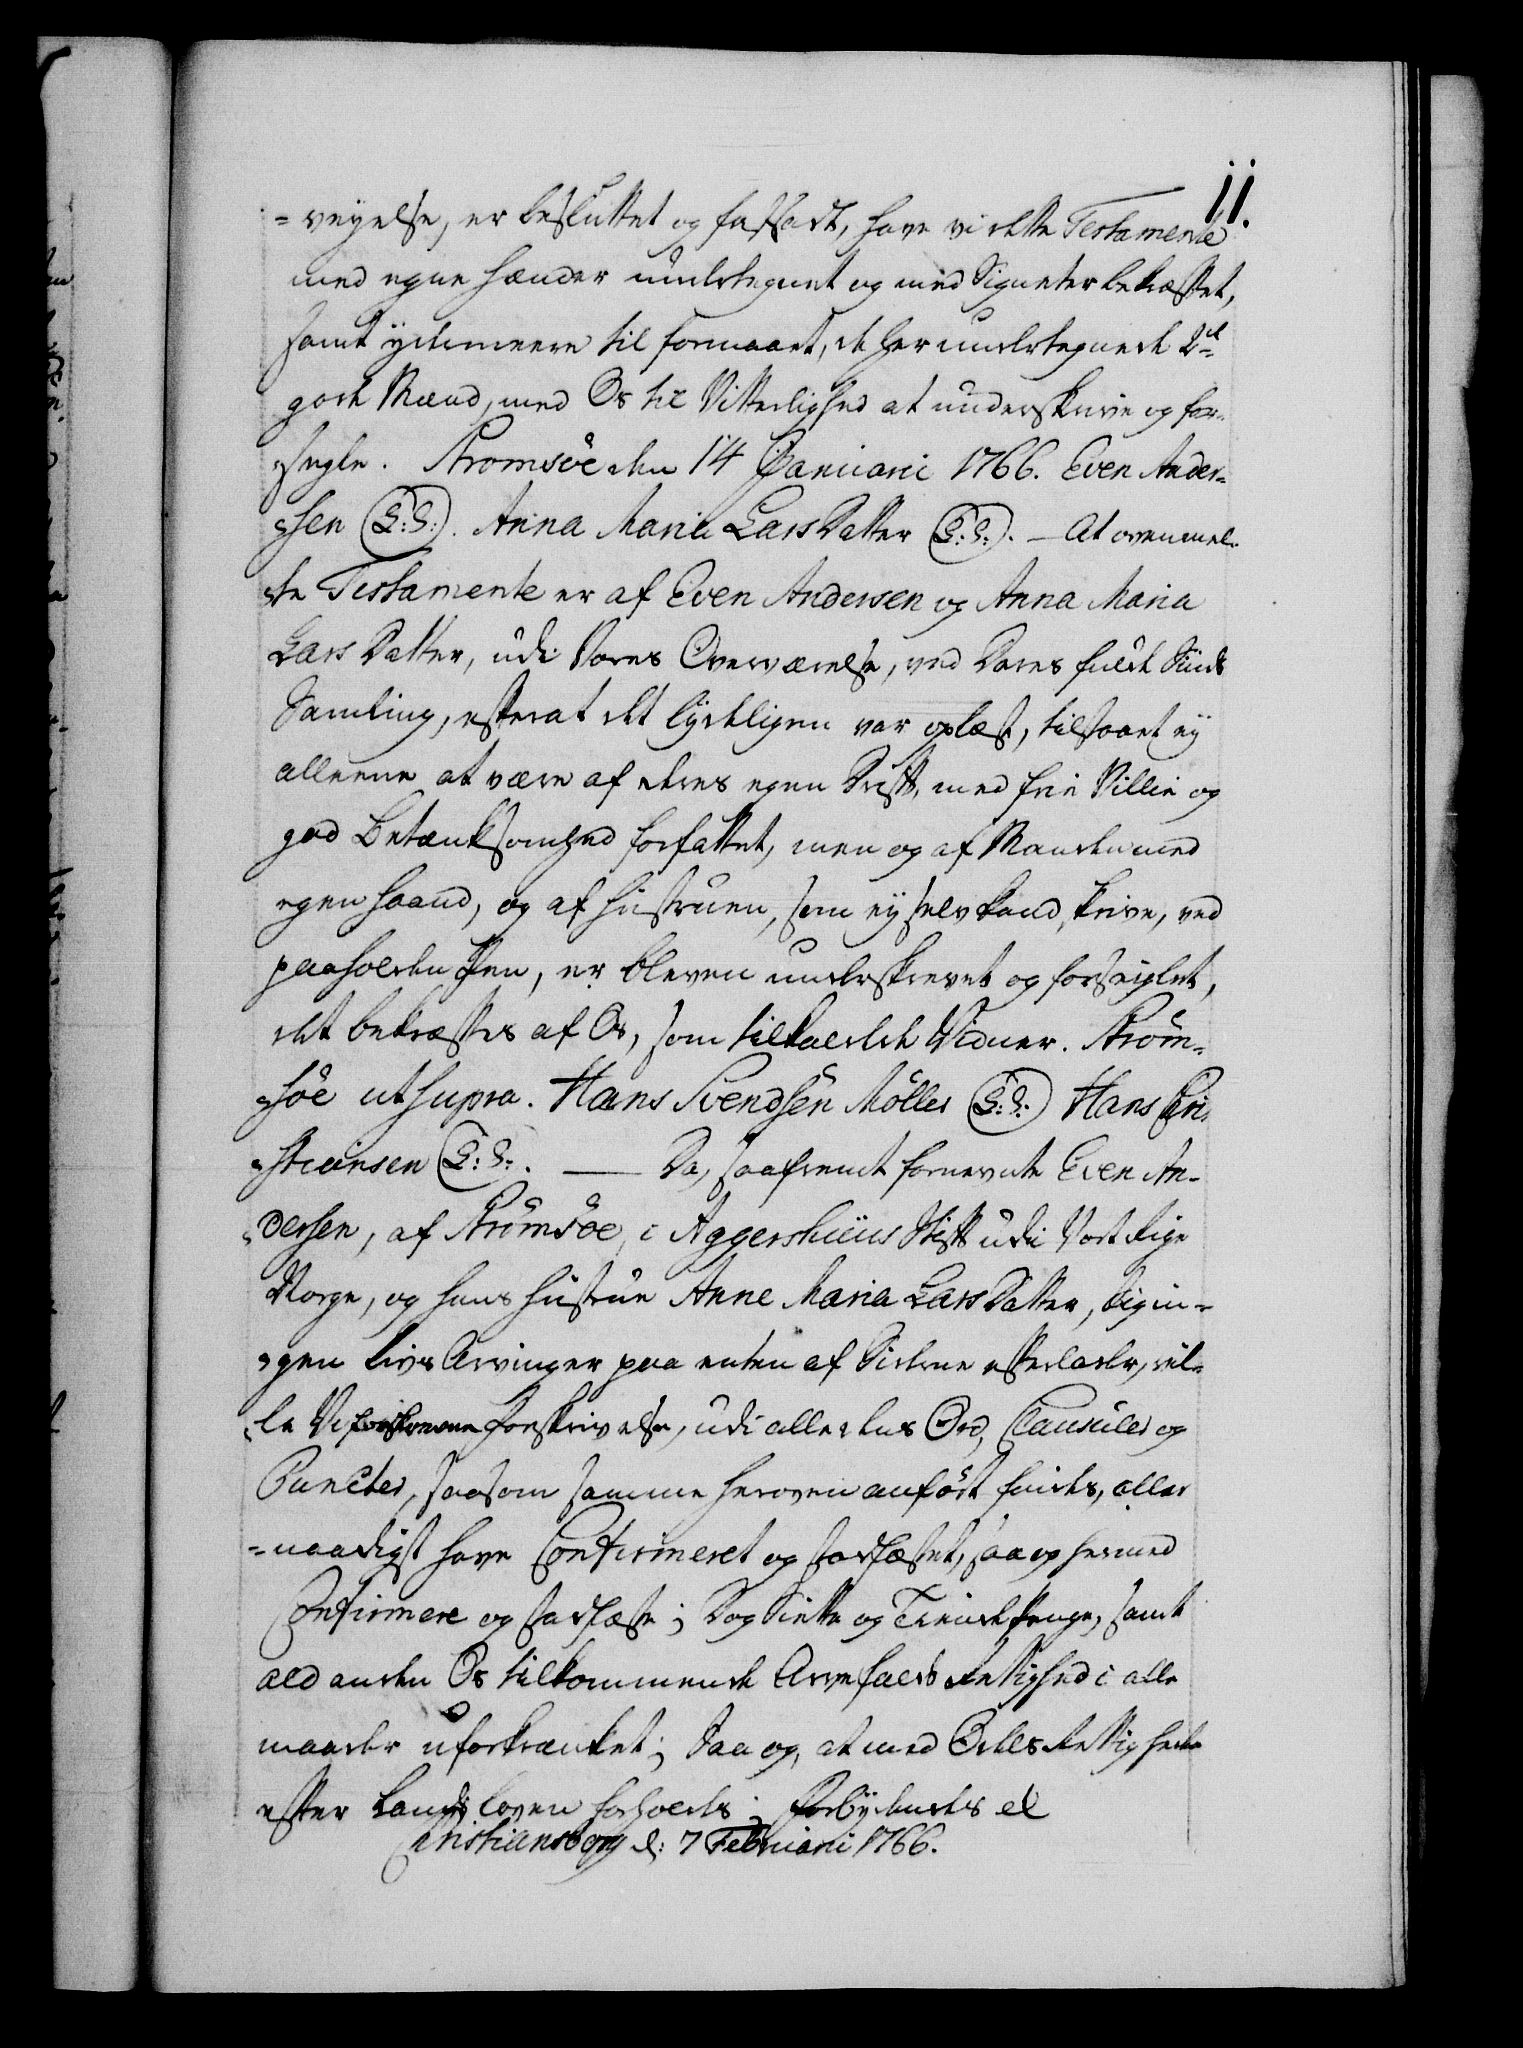 11.
=veyelse, er besluttet og fastsadt, have vi dette Testamente
med egne Hænder underteguet og med Signeter bekræftet,
samt ydermeere til formaaet, de her undertegnede 2de
gode Mænd, med Os til Vitterlighed at underskrive og for-
=segle. Stromsöe den 14 Januarii 1766. Even Ander-
=sen (L:S:). Anna Maria Lars Datter (L:S:). — At ovenmel-
=te Testamente er af Even Andersen og Anna Maria
Lars Datter, udi Vores Overværelse, ved Deres fulde Sinds
Samling, efterat det lydeligen var oplæst, tilstaaet ey
alleene at være af deres egen Drift, med frie Villie og
god Betænksomhed forfattet, men og af Manden med
egen Haand, og af Hustruen, som ey selv kand skrive, ved
paaholden Pen, er bleven underskrevet og forseiglet,
det bekræftes af Os, som tilkaldede Vidner. Ström-
=söe ut supra. Hans Svendsen Möller (L:S:) Hans Chri-
=stiansen (L:S:). — Da, saafremt fornevnte Even An-
=dersen, af Strömsöe, i Aggershuus Stift udi Vort Rige
Norge, og hans Hustrue Anne Maria Lars Datter, ey in-
=gen Livs Arvinger paa enten af Siderne efterlader, vil-
=le Vi Forskrivelse, udi alle dens Ord, Clausuler og
Puncter, saasom samme heroven anfört findes, aller
=naadigst have Confirmeret og stadfæstet, saa og hermed
Confirmere og stadfæste; Dog Siette og Tiende Penge, samt
ald anden Os tilkommende Arvefalds Rettighed i alle
maader uforkrænket; Saa og, at med Odels Rettighed
efter Lands Loven forholdes; Forbydendes etc
Christiansborg d: 7 Februarii 1766.